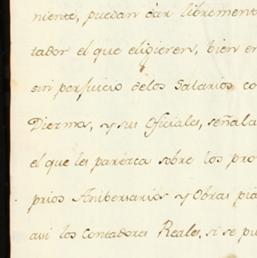 niente, puedan dar libremente
tador el que eligieren, bien en
sin perjuicio delos Salarios co
Diezma, y sus Oficiales, señala
el que les parezca sobre los pro
prios Aniversarios y Obras pia
asi los Contadores Reales, si se pu